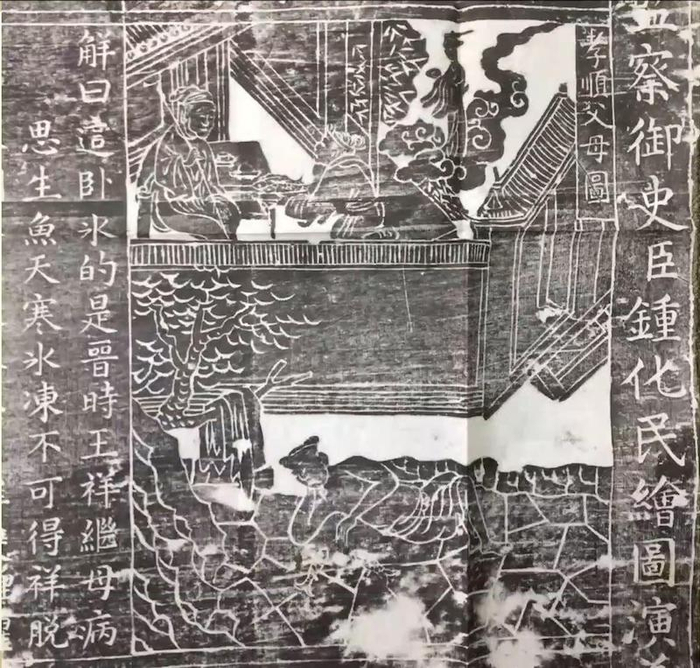 監察御史臣鍾化民繪圖演
孝順父母圖
解曰這卧氷的是晉時王祥繼母病
思生魚天寒氷凍不可得祥脱